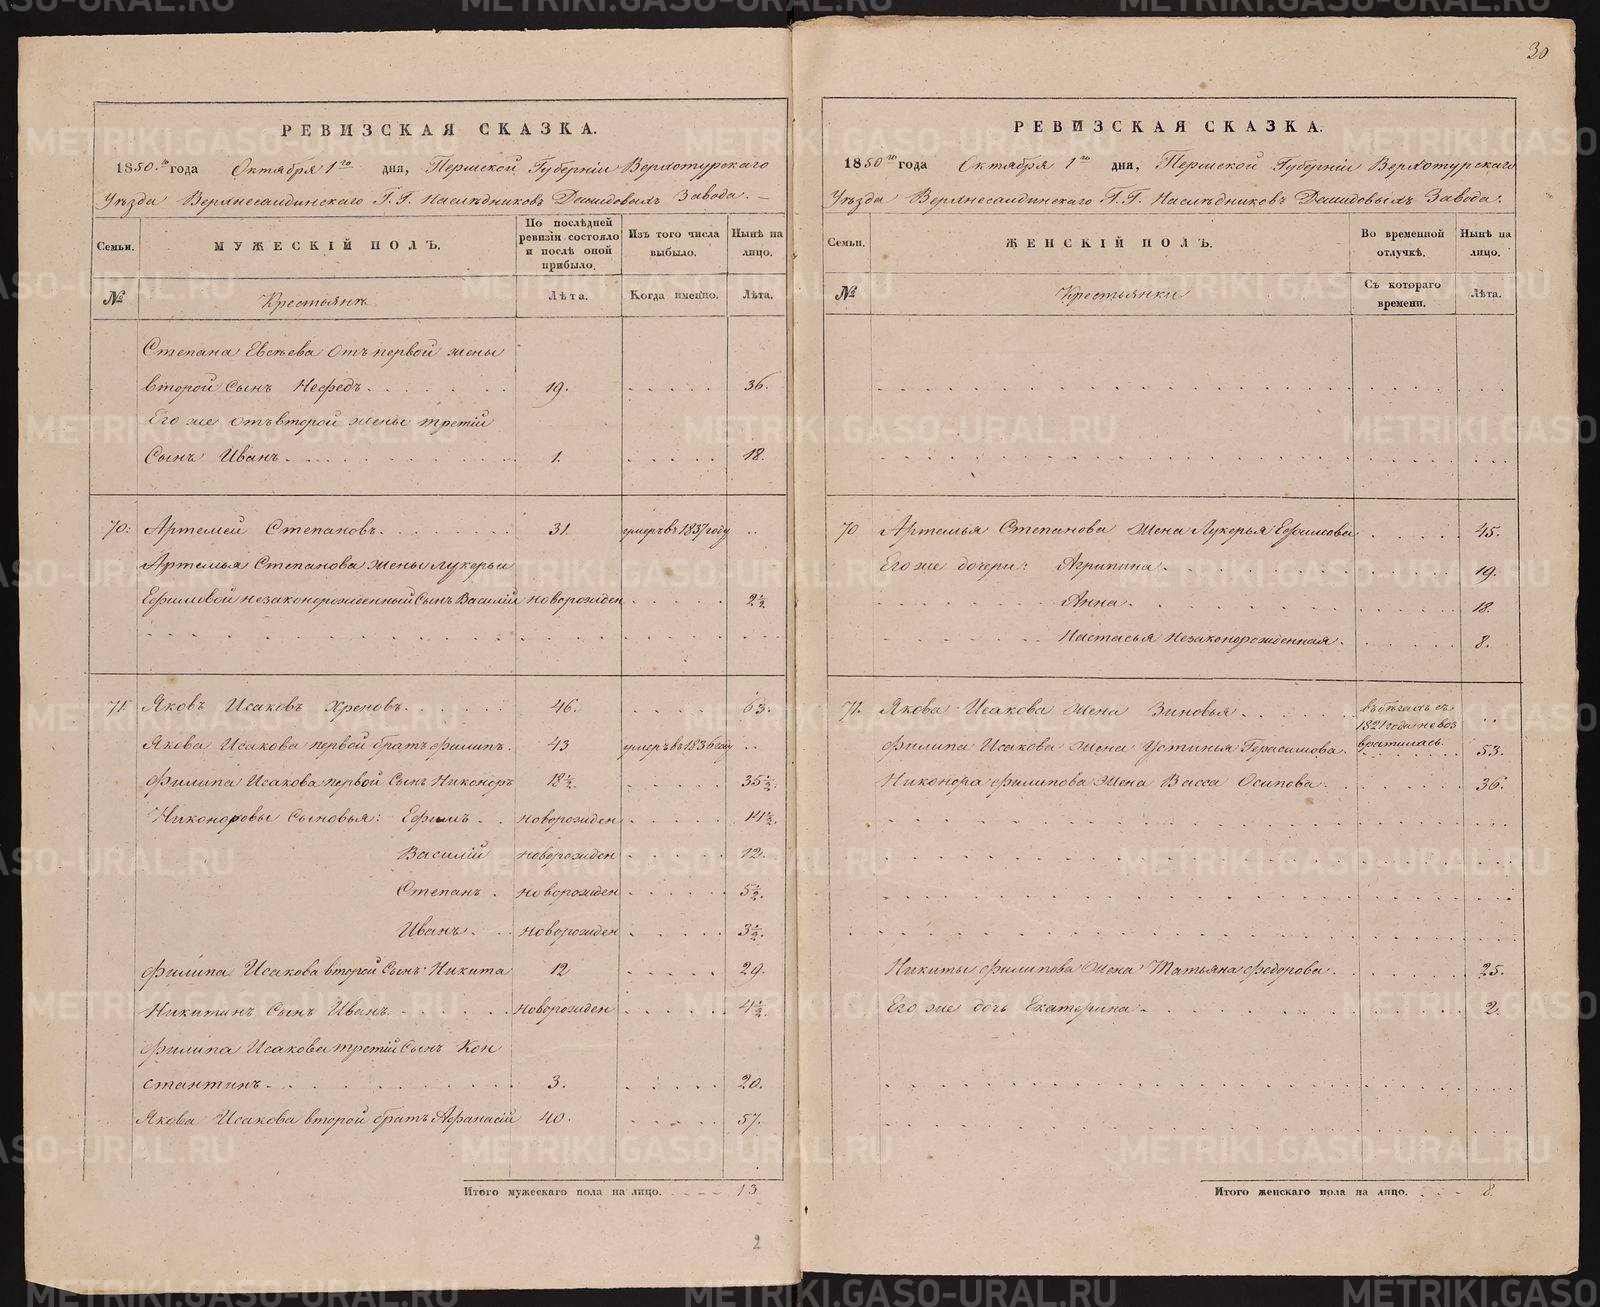 РЕВИЗСКАЯ СКАЗКА.
1850.го года Октября 1го дня, Пермской Губерніи Верхотурскаго
Уѣзда Верхнесалдинскаго Г.Г. Наслѣдниковъ Демидовыхъ Завода.
Семьи.
МУЖЕСКІЙ ПОЛЪ.
По послѣдней ревизіи состояло и послѣ оной прибыло.
Изъ того числа выбыло.
Нынѣ на лицо.
№
Крестьянъ
Лѣта.
Когда именно.
Лѣта.
Степана Евсѣева отъ первой жены
второй сынъ Нефедъ 19. 36.
Его же отъ второй жены третій
Сынъ Иванъ 1. 18.
70. Артемей Степановъ 31. умеръ въ 1837 году
Артемья Степанова жены Лукерьи
Ефимовой незаконорожденный Сынъ Василій новорожден 2½
71. Яковъ Исаковъ Хреновъ 46. 63.
Якова Исакова первой братъ Филипъ. 43 умеръ въ 1836 году
Филипа Исакова первой Сынъ Никоноръ 18½. 35½.
Никоноровы Сыновья: Ефимъ новорожден 14½.
Василій новорожден 12.
Степанъ новорожден 5½.
Иванъ новорожден 3½.
Филипа Исакова второй Сынъ Никита 12 29.
Никитинъ Сынъ Иванъ новорожден 4½.
Филипа Исакова третій Сынъ Кон
стантинъ 3. 20.
Якова Исакова второй братъ Афанасій 40. 57.
Итого мужескаго пола на лицо. 13
2
30
РЕВИЗСКАЯ СКАЗКА.
1850го года Октября 1го дня, Пермской Губерніи Верхотурскаго
Уѣзда Верхнесалдинскаго Г.Г. Наслѣдниковъ Демидовыхъ Завода.
Семьи.
ЖЕНСКІЙ ПОЛЪ.
Во временной отлучкѣ.
Нынѣ на лицо.
№
Крестьянки
Съ котораго времени.
Лѣта.
70 Артемья Степанова жена Лукерья Ефимова 45.
Его же дочери: Агрипина 19.
Анна 18.
Настасья незаконорожденная 8.
71. Якова Исакова жена Зиновья въ бѣгахъ съ
1821 года не воз
вратилась
Филипа Исакова жена Устинья Герасимова. 53.
Никонора Филипова жена Васса Осипова. 36.
Никиты Филипова жена Татьяна Федорова. 25.
Его же дочь Екатерина 2.
Итого женскаго пола на лицо. 8.
METRIKI.GASO-URAL.RU